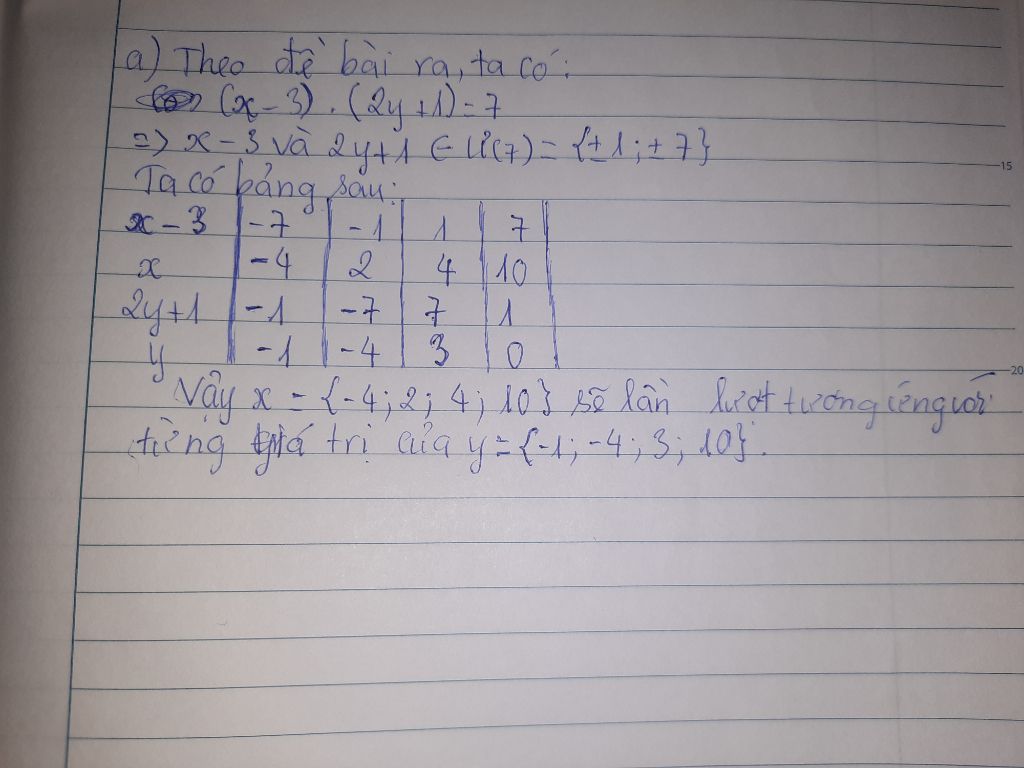 a) Theo đề bài ra, ta có:
(x-3).(2y+1)=7
=> x-3 và 2y+1 ∈ Ư(7) = {±1; ±7}
Ta có bảng sau:
x-3 | -7 | -1 | 1 | 7
x | -4 | 2 | 4 | 10
2y+1 | -1 | -7 | 7 | 1
y | -1 | -4 | 3 | 0
Vậy x = {-4; 2; 4; 10} sẽ lần lượt tương ứng với
từng giá trị của y={-1; -4; 3; 10}.
15
20